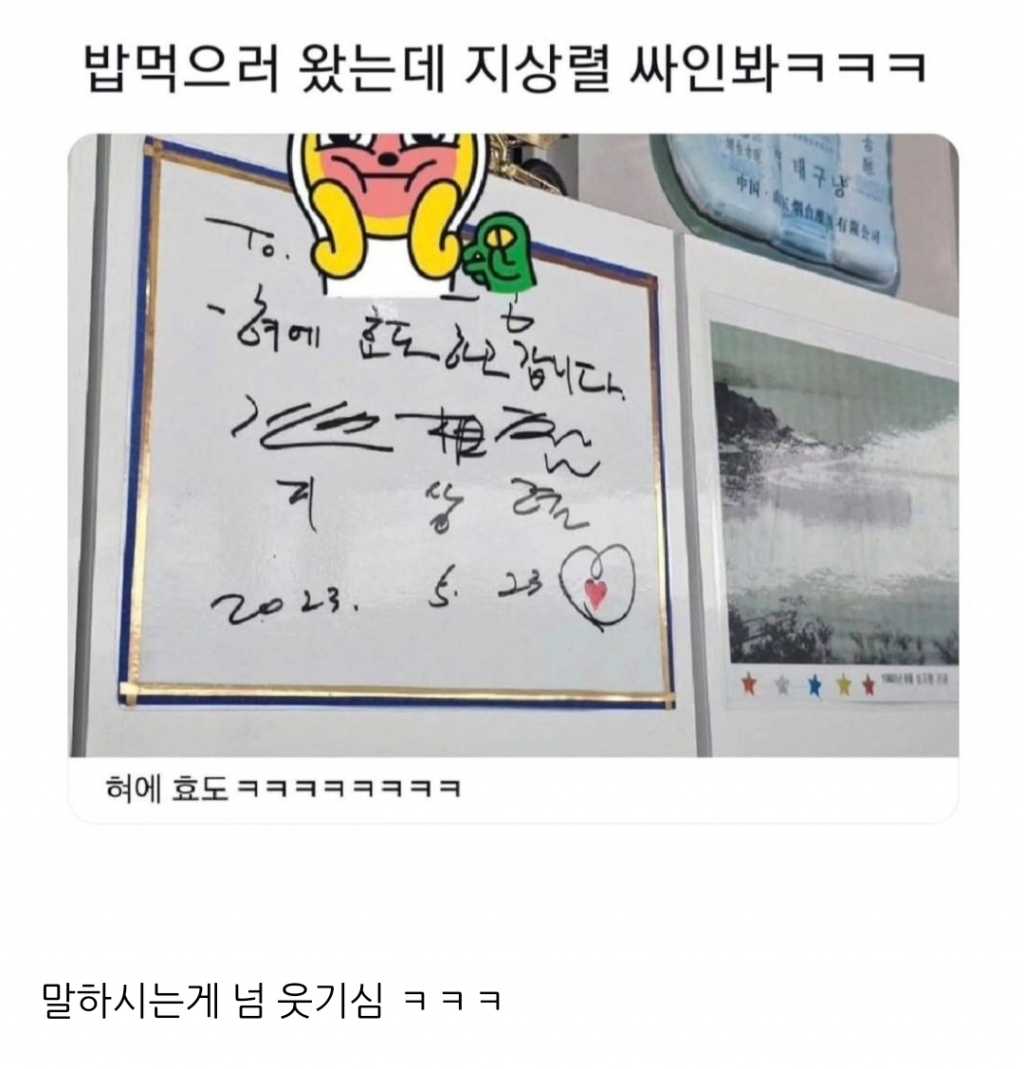 밥먹으러 왔는데 지상렬 싸인봐ㅋㅋㅋ
To.
- 혀에 효도하고 갑니다.
相
지 상 렬
2023. 5. 23
대구낭
中国·烟台 有限公司
혀에 효도ㅋㅋㅋㅋㅋㅋㅋㅋ
말하시는게 넘 웃기심 ㅋㅋㅋ